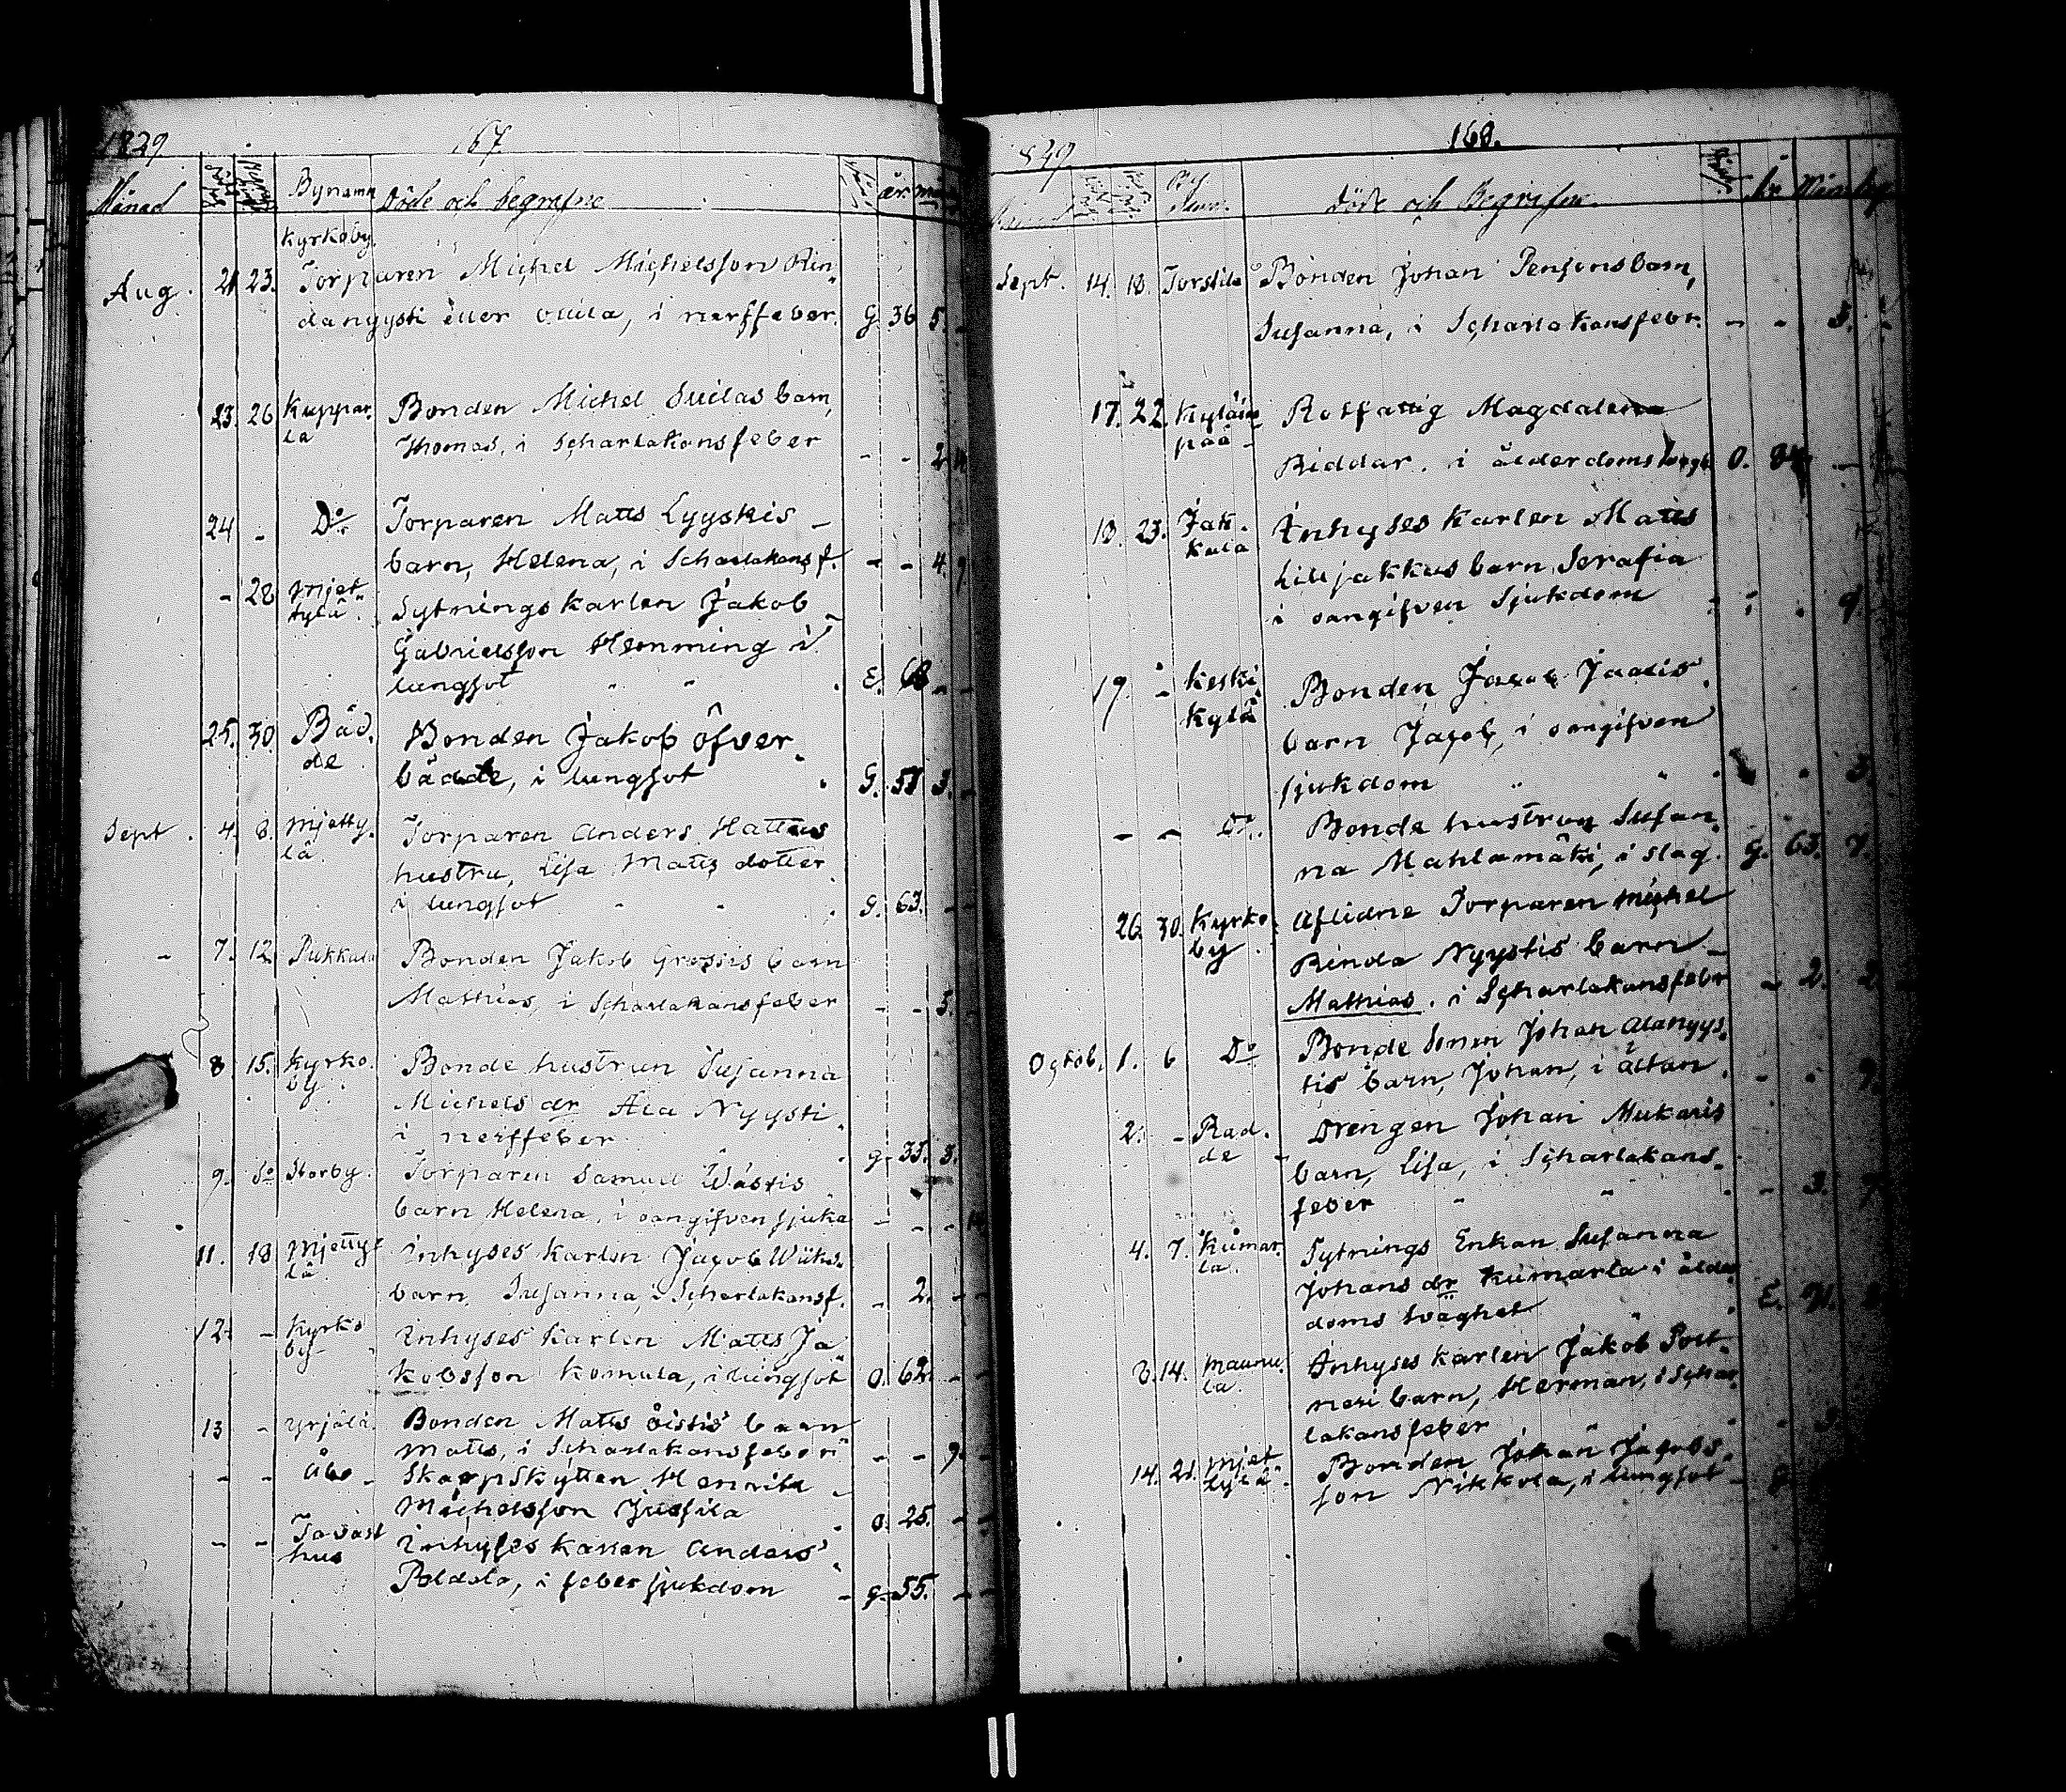 1829. 167.
Månad Bynamn Döde och begrafne år mån
Kyrkoby.
Aug. 21 23. Torparen Michel Michelsson Rin
danyysti eller Ollila, i nerffeber. G. 36 5. -
23. 26 Kuppar Bonden Michel Suilas barn,
la Thomas, i Scharlakansfeber - - 2
24 - Do Torparen Matts Lyyskis -
barn, Helena, i Scharlakansf. - - 4. 9
- 28 Mjet Sytningskarlen Jakob
tylä. Gabrielsson Hemming i
lungsot " " E. 68 - -
25. 30. Bäd. Bonden Jakob Öfver
de bädde, i lungsot G. 57 3. -
Sept. 4. 8. Mjetty. Torparen Anders Hattus
lä hustru, Lisa Matts dotter
i lungsot - - G. 63. - -
- 7. 12. Pukkala Bonden Jakob Grasis barn
Mathias, i Scharlakansfeber - - 5.
8 15. Kyrko. Bonde hustrun Susanna
by. Michels dr Ala Nyysti
i nerffeber g. 33. 3.
9. Do Storby. Torparen Samuel Wästis
barn Helena, i oangifven sjuka - - -
11. 18 Mjetty Inhyses Karlen Jacob Wiiks
lä. barn Susanna, i Scharlakansf. - 2. - -
12. - Kyrko Inhyses Karlen Matts Ja
by kobsson Komula, i lungsot O. 62. - -
13 - Yrjälä. Bonden Matts Öistis barn
Matts, i Scharlakansfeber - - 9. -
- - Åbo - Skarpskytten Henrik
Michelsson Jussila O. 25. - -
- - Tavast Inhyses Karlen Anders
hus Peldola, i feber sjukdom - g. 55. - -
1829 168.
By Namn. Döde och Begrafne. år Mån dag
Sept. 14. 18. Torstila Bonden Johan Pensons barn,
Susanna, i Scharlakansfebr. - - 5. -
17. 22. Kylän Rotfattig Magdalena
pää - Riddar. i ålderdoms O. 84. -
18. 23. Jak. Inhyses Karlen Matts
kula Lilljakkus barn, Serafia
i oangifven Sjukdom 9
19. - Keski Bonden Jacob Jaalis
kylä barn Jacob, i oangifven
sjukdom " " 3.
- - Do. Bonde hustrun Susan
na Mahlamäki, i slag. G. 63. 7.
26. 30. Kyrko Aflidne Torparen Michel
by Rinda Nyystis barn -
Mathias. i Scharlakansfebr - 2. 2.
Octob. 1. 6 Do Bonde Sonen Johan Alanyys.
tis barn, Johan, i ältan. - . 9.
2. - Rad. Drengen Johan Mukaris
de barn, Lisa, i Scharlakans.
feber " " - 3. 7.
4. 7. Kumar. Sytnings Enkan Susanna
la. Johans dr Kumarla i ålder
doms svaghet " E. 71.
8. 14. Maunu Inhyses Karlen Jakob Port
la. neri barn, Herman, i Schar
lakansfeber "
14. 21. Mjet Bonden Johan Jacobs
tylä. son Nikkola, i lungsot -